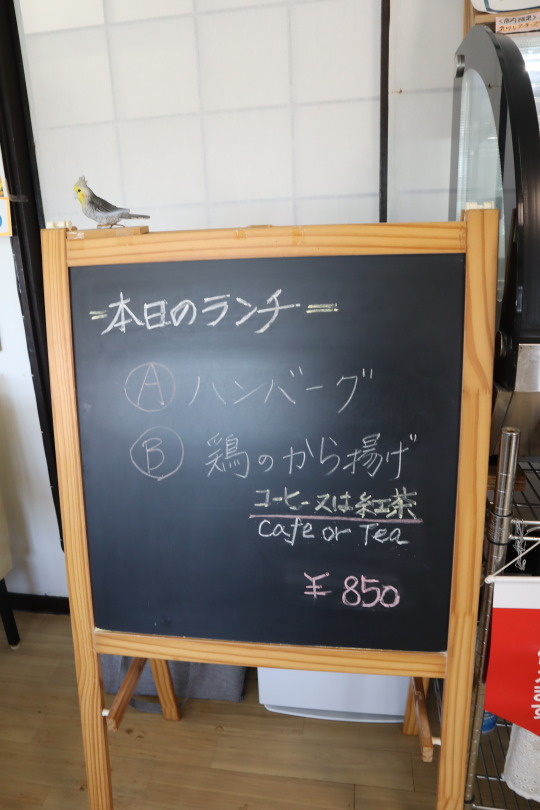 =本日のランチ=
Ⓐ ハンバーグ
Ⓑ 鶏のから揚げ
コーヒー又は紅茶
Cafe or Tea
¥850